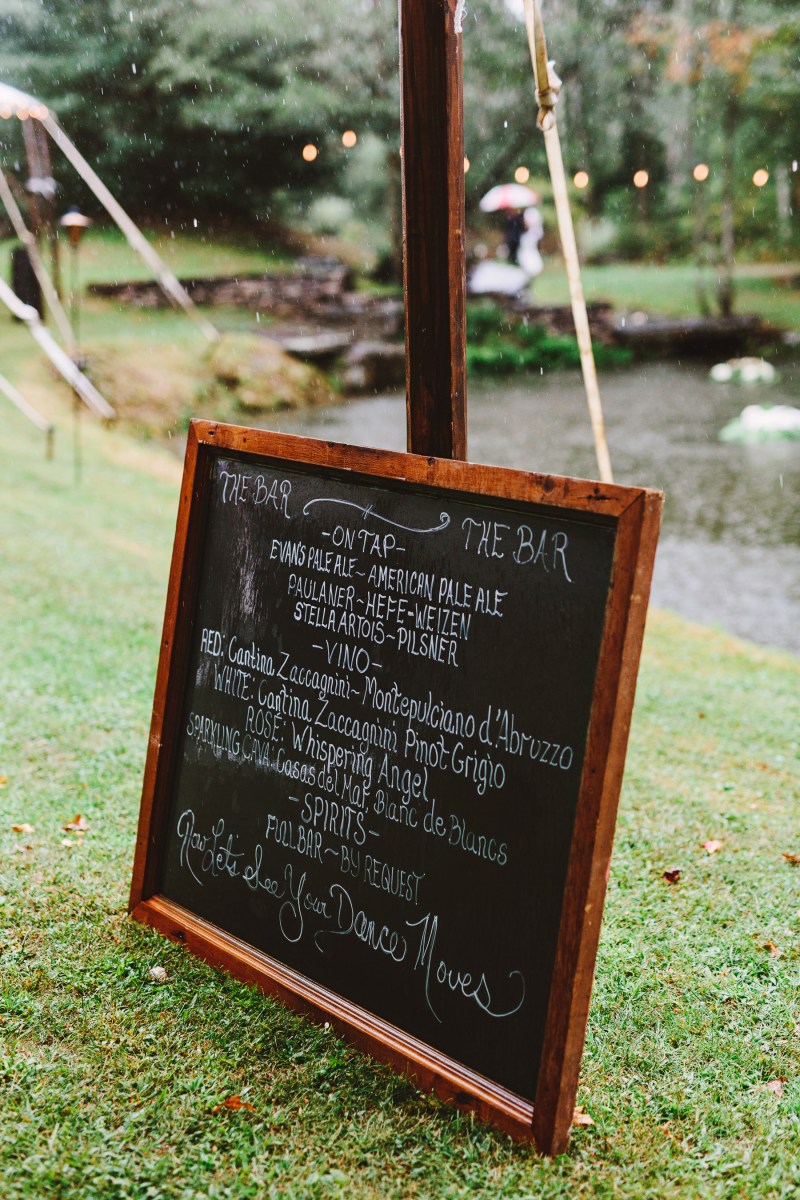 THE BAR THE BAR
-ON TAP-
EVAN'S PALE ALE~AMERICAN PALE ALE
PAULANER~HEFE-WEIZEN
STELLA ARTOIS~PILSNER
-VINO-
RED: Cantina Zaccagnini~Montepulciano d'Abruzzo
WHITE: Cantina Zaccagnini Pinot Grigio
ROSÉ: Whispering Angel
SPARKLING CAVA: Casas del Mar, Blanc de Blancs
-SPIRITS-
FULL BAR~BY REQUEST
Now Let's See Your Dance Moves